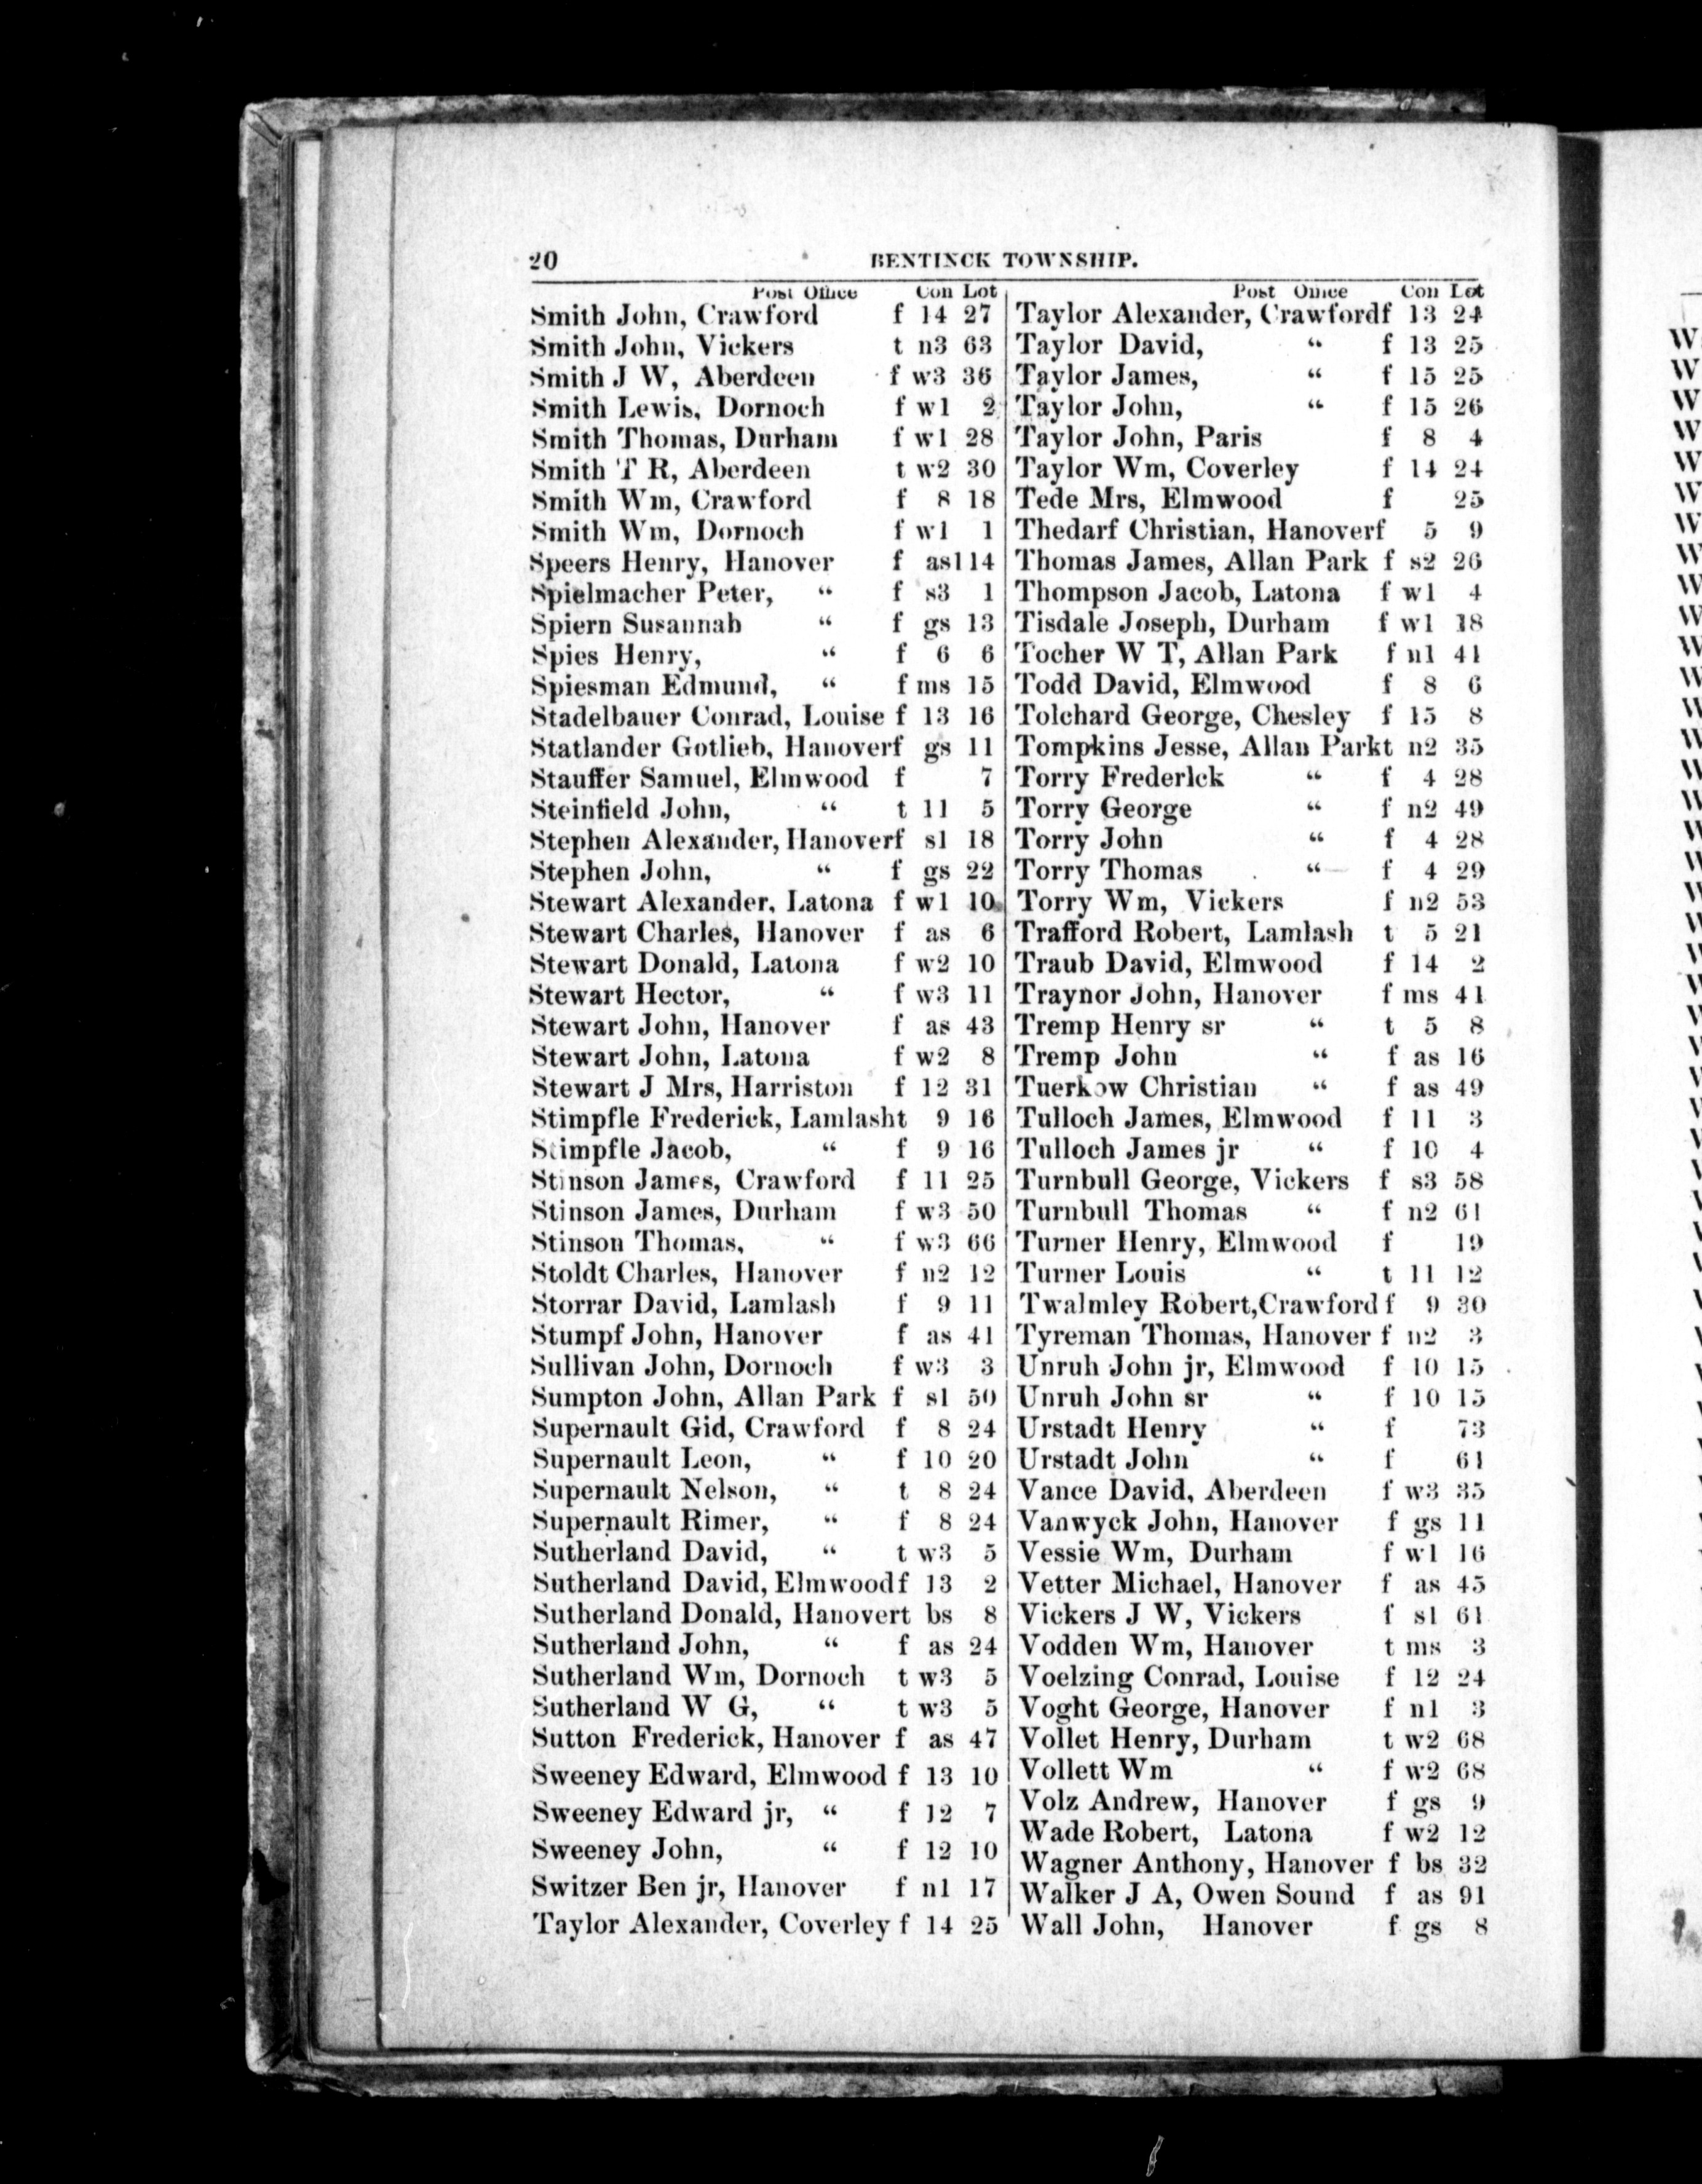 20 BENTINCK TOWNSHIP.
Post Office Con Lot
Smith John, Crawford f 14 27
Smith John, Vickers t n3 63
Smith J W, Aberdeen f w3 36
Smith Lewis, Dornoch f w1 2
Smith Thomas, Durham f w1 28
Smith T R, Aberdeen t w2 30
Smith Wm, Crawford f 8 18
Smith Wm, Dornoch f w1 1
Speers Henry, Hanover f as114
Spielmacher Peter, “ f s3 1
Spiern Susannah “ f gs 13
Spies Henry, “ f 6 6
Spiesman Edmund, “ f ms 15
Stadelbauer Conrad, Louise f 13 16
Statlander Gotlieb, Hanoverf gs 11
Stauffer Samuel, Elmwood f 7
Steinfield John, “ t 11 5
Stephen Alexander, Hanoverf s1 18
Stephen John, “ f gs 22
Stewart Alexander, Latona f w1 10
Stewart Charles, Hanover f as 6
Stewart Donald, Latona f w2 10
Stewart Hector, “ f w3 11
Stewart John, Hanover f as 43
Stewart John, Latona f w2 8
Stewart J Mrs, Harriston f 12 31
Stimpfle Frederick, Lamlasht 9 16
Stimpfle Jacob, “ f 9 16
Stinson James, Crawford f 11 25
Stinson James, Durham f w3 50
Stinson Thomas, “ f w3 66
Stoldt Charles, Hanover f n2 12
Storrar David, Lamlash f 9 11
Stumpf John, Hanover f as 41
Sullivan John, Dornoch f w3 3
Sumpton John, Allan Park f s1 50
Supernault Gid, Crawford f 8 24
Supernault Leon, “ f 10 20
Supernault Nelson, “ t 8 24
Supernault Rimer, “ f 8 24
Sutherland David, “ t w3 5
Sutherland David, Elmwoodf 13 2
Sutherland Donald, Hanovert bs 8
Sutherland John, “ f as 24
Sutherland Wm, Dornoch t w3 5
Sutherland W G, “ t w3 5
Sutton Frederick, Hanover f as 47
Sweeney Edward, Elmwood f 13 10
Sweeney Edward jr, “ f 12 7
Sweeney John, “ f 12 10
Switzer Ben jr, Hanover f n1 17
Taylor Alexander, Coverley f 14 25
Post Office Con Lot
Taylor Alexander, Crawfordf 13 24
Taylor David, “ f 13 25
Taylor James, “ f 15 25
Taylor John, “ f 15 26
Taylor John, Paris f 8 4
Taylor Wm, Coverley f 14 24
Tede Mrs, Elmwood f 25
Thedarf Christian, Hanoverf 5 9
Thomas James, Allan Park f s2 26
Thompson Jacob, Latona f w1 4
Tisdale Joseph, Durham f w1 18
Tocher W T, Allan Park f n1 41
Todd David, Elmwood f 8 6
Tolchard George, Chesley f 15 8
Tompkins Jesse, Allan Parkt n2 35
Torry Frederick “ f 4 28
Torry George “ f n2 49
Torry John “ f 4 28
Torry Thomas “ f 4 29
Torry Wm, Vickers f n2 53
Trafford Robert, Lamlash t 5 21
Traub David, Elmwood f 14 2
Traynor John, Hanover f ms 41
Tremp Henry sr “ t 5 8
Tremp John “ f as 16
Tuerkow Christian “ f as 49
Tulloch James, Elmwood f 11 3
Tulloch James jr “ f 10 4
Turnbull George, Vickers f s3 58
Turnbull Thomas “ f n2 61
Turner Henry, Elmwood f 19
Turner Louis “ t 11 12
Twalmley Robert,Crawford f 9 30
Tyreman Thomas, Hanover f n2 3
Unruh John jr, Elmwood f 10 15
Unruh John sr “ f 10 15
Urstadt Henry “ f 73
Urstadt John “ f 61
Vance David, Aberdeen f w3 35
Vanwyck John, Hanover f gs 11
Vessie Wm, Durham f w1 16
Vetter Michael, Hanover f as 45
Vickers J W, Vickers f s1 61
Vodden Wm, Hanover t ms 3
Voelzing Conrad, Louise f 12 24
Voght George, Hanover f n1 3
Vollet Henry, Durham t w2 68
Vollett Wm “ f w2 68
Volz Andrew, Hanover f gs 9
Wade Robert, Latona f w2 12
Wagner Anthony, Hanover f bs 32
Walker J A, Owen Sound f as 91
Wall John, Hanover f gs 8